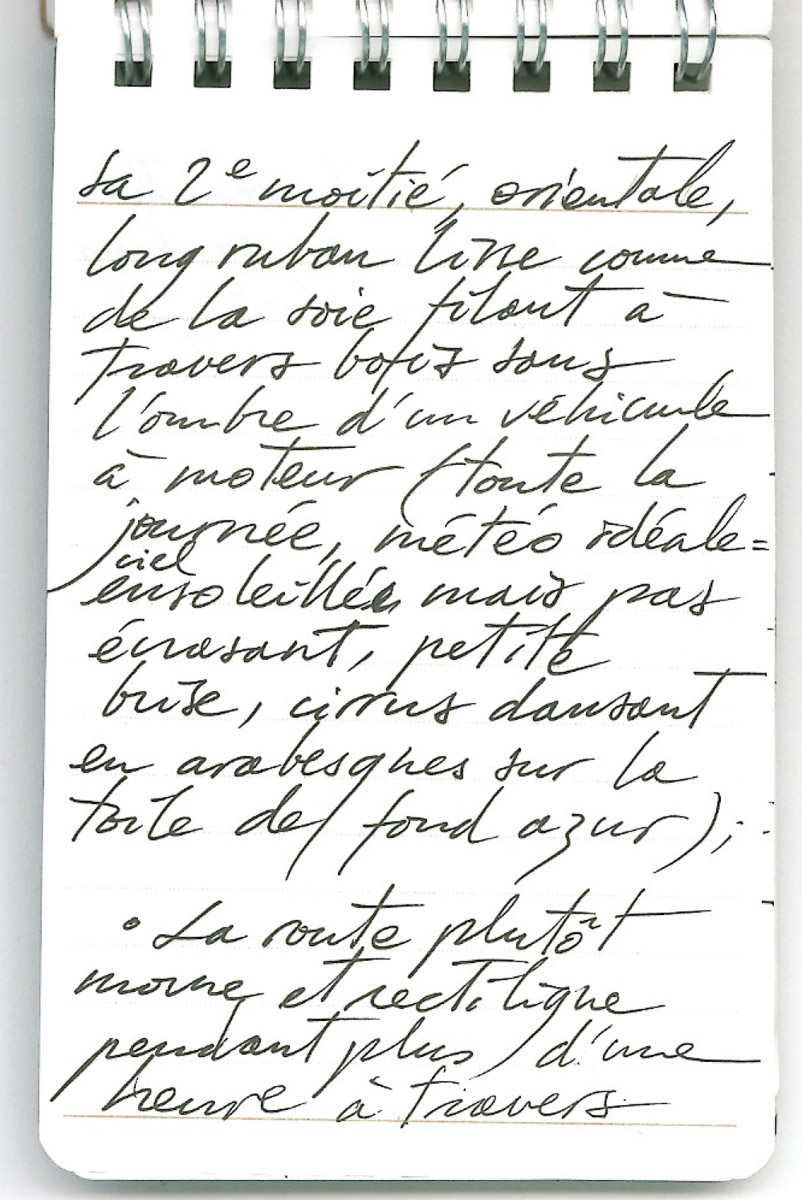 sa 2e moitié, orientale,
long ruban lisse comme
de la soie filant à
travers bois sans
l'ombre d'un véhicule
à moteur (toute la
journée, météo idéale =
ciel
ensoleillé, mais pas
écrasant, petite
brise, cirrus dansant
en arabesques sur la
toile de fond azur);
• La route plutôt
morne et rectiligne
pendant plus d'une
heure à travers